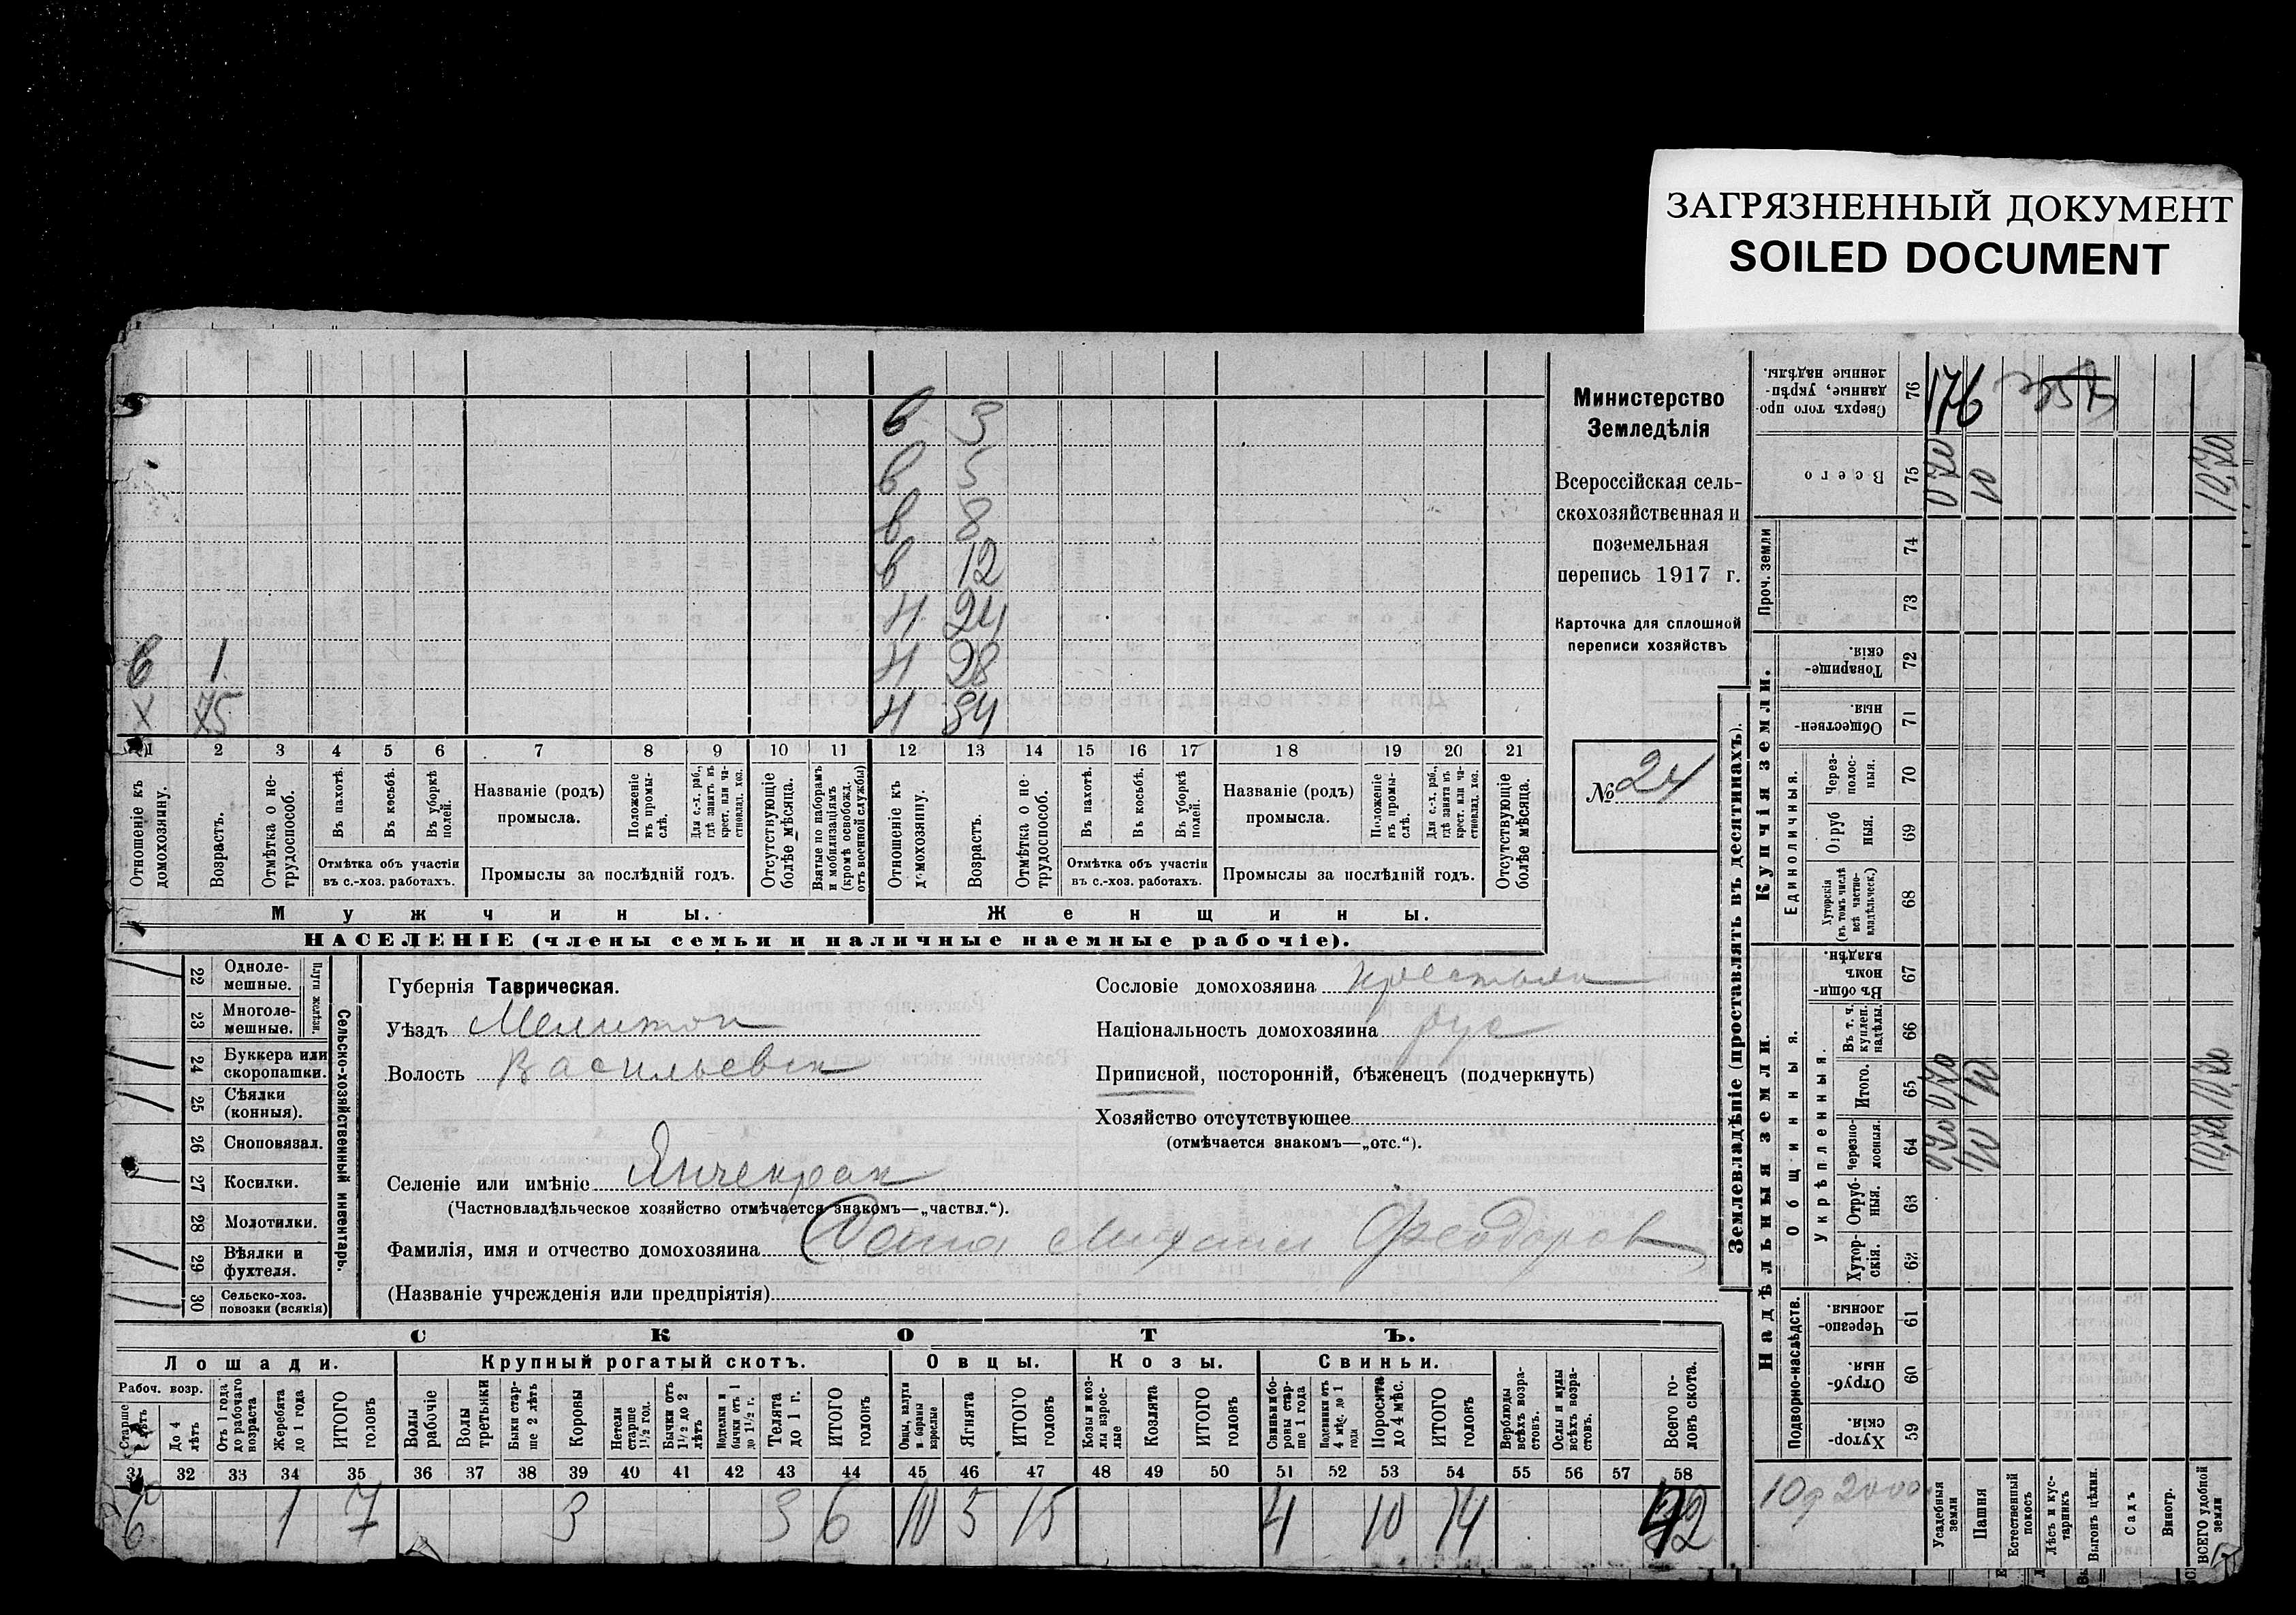 ЗАГРЯЗНЕННЫЙ ДОКУМЕНТ
SOILED DOCUMENT
в 3
в 5
в 8
в 12
н 24
н 28
в 1 н 34
х 75
1 2 3 4 5 6 7 8 9 10 11 12 13 14 15 16 17 18 19 20 21
Отношеніе къ домохозяину.
Возрастъ.
Отмѣтка о нетрудоспособ.
Въ пахотѣ.
Въ косьбѣ.
Въ уборкѣ полей.
Отмѣтка объ участіи въ с.-хоз. работахъ.
Названіе (родъ) промысла.
Положеніе въ промыслѣ.
Для с.-х. раб., гдѣ занятъ въ крест. или частновлад. хоз.
Промыслы за послѣдній годъ.
Отсутствующіе болѣе мѣсяца.
Взятые по наборамъ и мобилизаціямъ (кромѣ освобожд. отъ военной службы)
Отношеніе къ домохозяину.
Возрастъ.
Отмѣтка о нетрудоспособ.
Въ пахотѣ.
Въ косьбѣ.
Въ уборкѣ полей.
Отмѣтка объ участіи въ с.-хоз. работахъ.
Названіе (родъ) промысла.
Положеніе въ промыслѣ.
Для с.-х. раб., гдѣ занята въ крест. или частновлад. хоз.
Промыслы за послѣдній годъ.
Отсутствующіе болѣе мѣсяца.
Мужчины. Женщины.
НАСЕЛЕНІЕ (члены семьи и наличные наемные рабочіе).
Министерство
Земледѣлія
Всероссійская сель-
скохозяйственная и
поземельная
перепись 1917 г.
Карточка для сплошной
переписи хозяйствъ
№ 24
Сельско-хозяйственный инвентарь.
Плуги желѣзн.
22 Однолемешные.
23 Многолемешные.
24 Буккера или скоропашки.
25 Сѣялки (конныя).
26 Сноповязал.
27 Косилки.
28 Молотилки.
29 Вѣялки и фухтеля.
30 Сельско-хоз. повозки (всякія)
Губернія Таврическая.
Уѣздъ Мелитоп
Волость Васильевск
Сословіе домохозяина крестьян
Національность домохозяина рус
Приписной, посторонній, бѣженецъ (подчеркнуть)
Хозяйство отсутствующее
(отмѣчается знакомъ—„отс.“).
Селеніе или имѣніе Янчекрак
(Частновладѣльческое хозяйство отмѣчается знакомъ—„частвл.“).
Фамилія, имя и отчество домохозяина Михаил Феодоров
(Названіе учрежденія или предпріятія)
СКОТЪ.
Лошади. Крупный рогатый скотъ. Овцы. Козы. Свиньи.
Рабоч. возр.
Старше 4 лѣтъ
До 4 лѣтъ
Отъ 1 года до рабочаго возраста
Жеребята до 1 года
ИТОГО головъ
Волы рабочіе
Волы третьяки
Быки старше 2 лѣтъ
Коровы
Нетели старше 1½ год.
Бычки отъ 1½ до 2 лѣтъ
Подтелки и бычки отъ 1 до 1½ г.
Телята до 1 г.
ИТОГО головъ
Овцы, валухи и бараны взрослые
Ягнята
ИТОГО головъ
Козы и козлы взрослые
Козлята
ИТОГО головъ
Свиньи и боровы старше 1 года
Подсвинки отъ 4 мѣс. до 1 года
Поросята до 4 мѣс.
ИТОГО головъ
Верблюды всѣхъ возрастовъ.
Ослы и мулы всѣхъ возрастовъ.
Всего головъ скота.
31 32 33 34 35 36 37 38 39 40 41 42 43 44 45 46 47 48 49 50 51 52 53 54 55 56 57 58
6 1 7 3 3 6 10 5 15 4 10 14 42
Землевладѣніе (проставлять въ десятинахъ).
Купчія земли.
Надѣльныя земли.
Сверхъ того проданные, укрѣпленные надѣлы. 76 176
Всего 75 0,70 10 10,70
Проч. земли 74
73
Товарищескія. 72
Общественныя 71
Единоличныя.
Черезполосныя. 70
Отрубныя. 69
Хуторскія (въ томъ числѣ всѣ частновладѣльческ.) 68
Въ общинномъ владѣн. 67
Общинныя.
Укрѣпленныя.
Въ т. ч. куплен. надѣлы. 66
Итого. 65 0,70 10 10,70
Черезполосныя. 64 0,70 10 10,70
Отрубныя. 63
Хуторскія. 62
Подворно-наслѣдств.
Черезполосныя. 61
Отрубныя. 60
Хуторскія. 59
10д 2000
Усадебныя земли
Пашня
Естественный покосъ
Лѣсъ и кустарникъ
Выгонъ цѣлин.
Садъ
Виногр.
ВСЕГО удобной земли